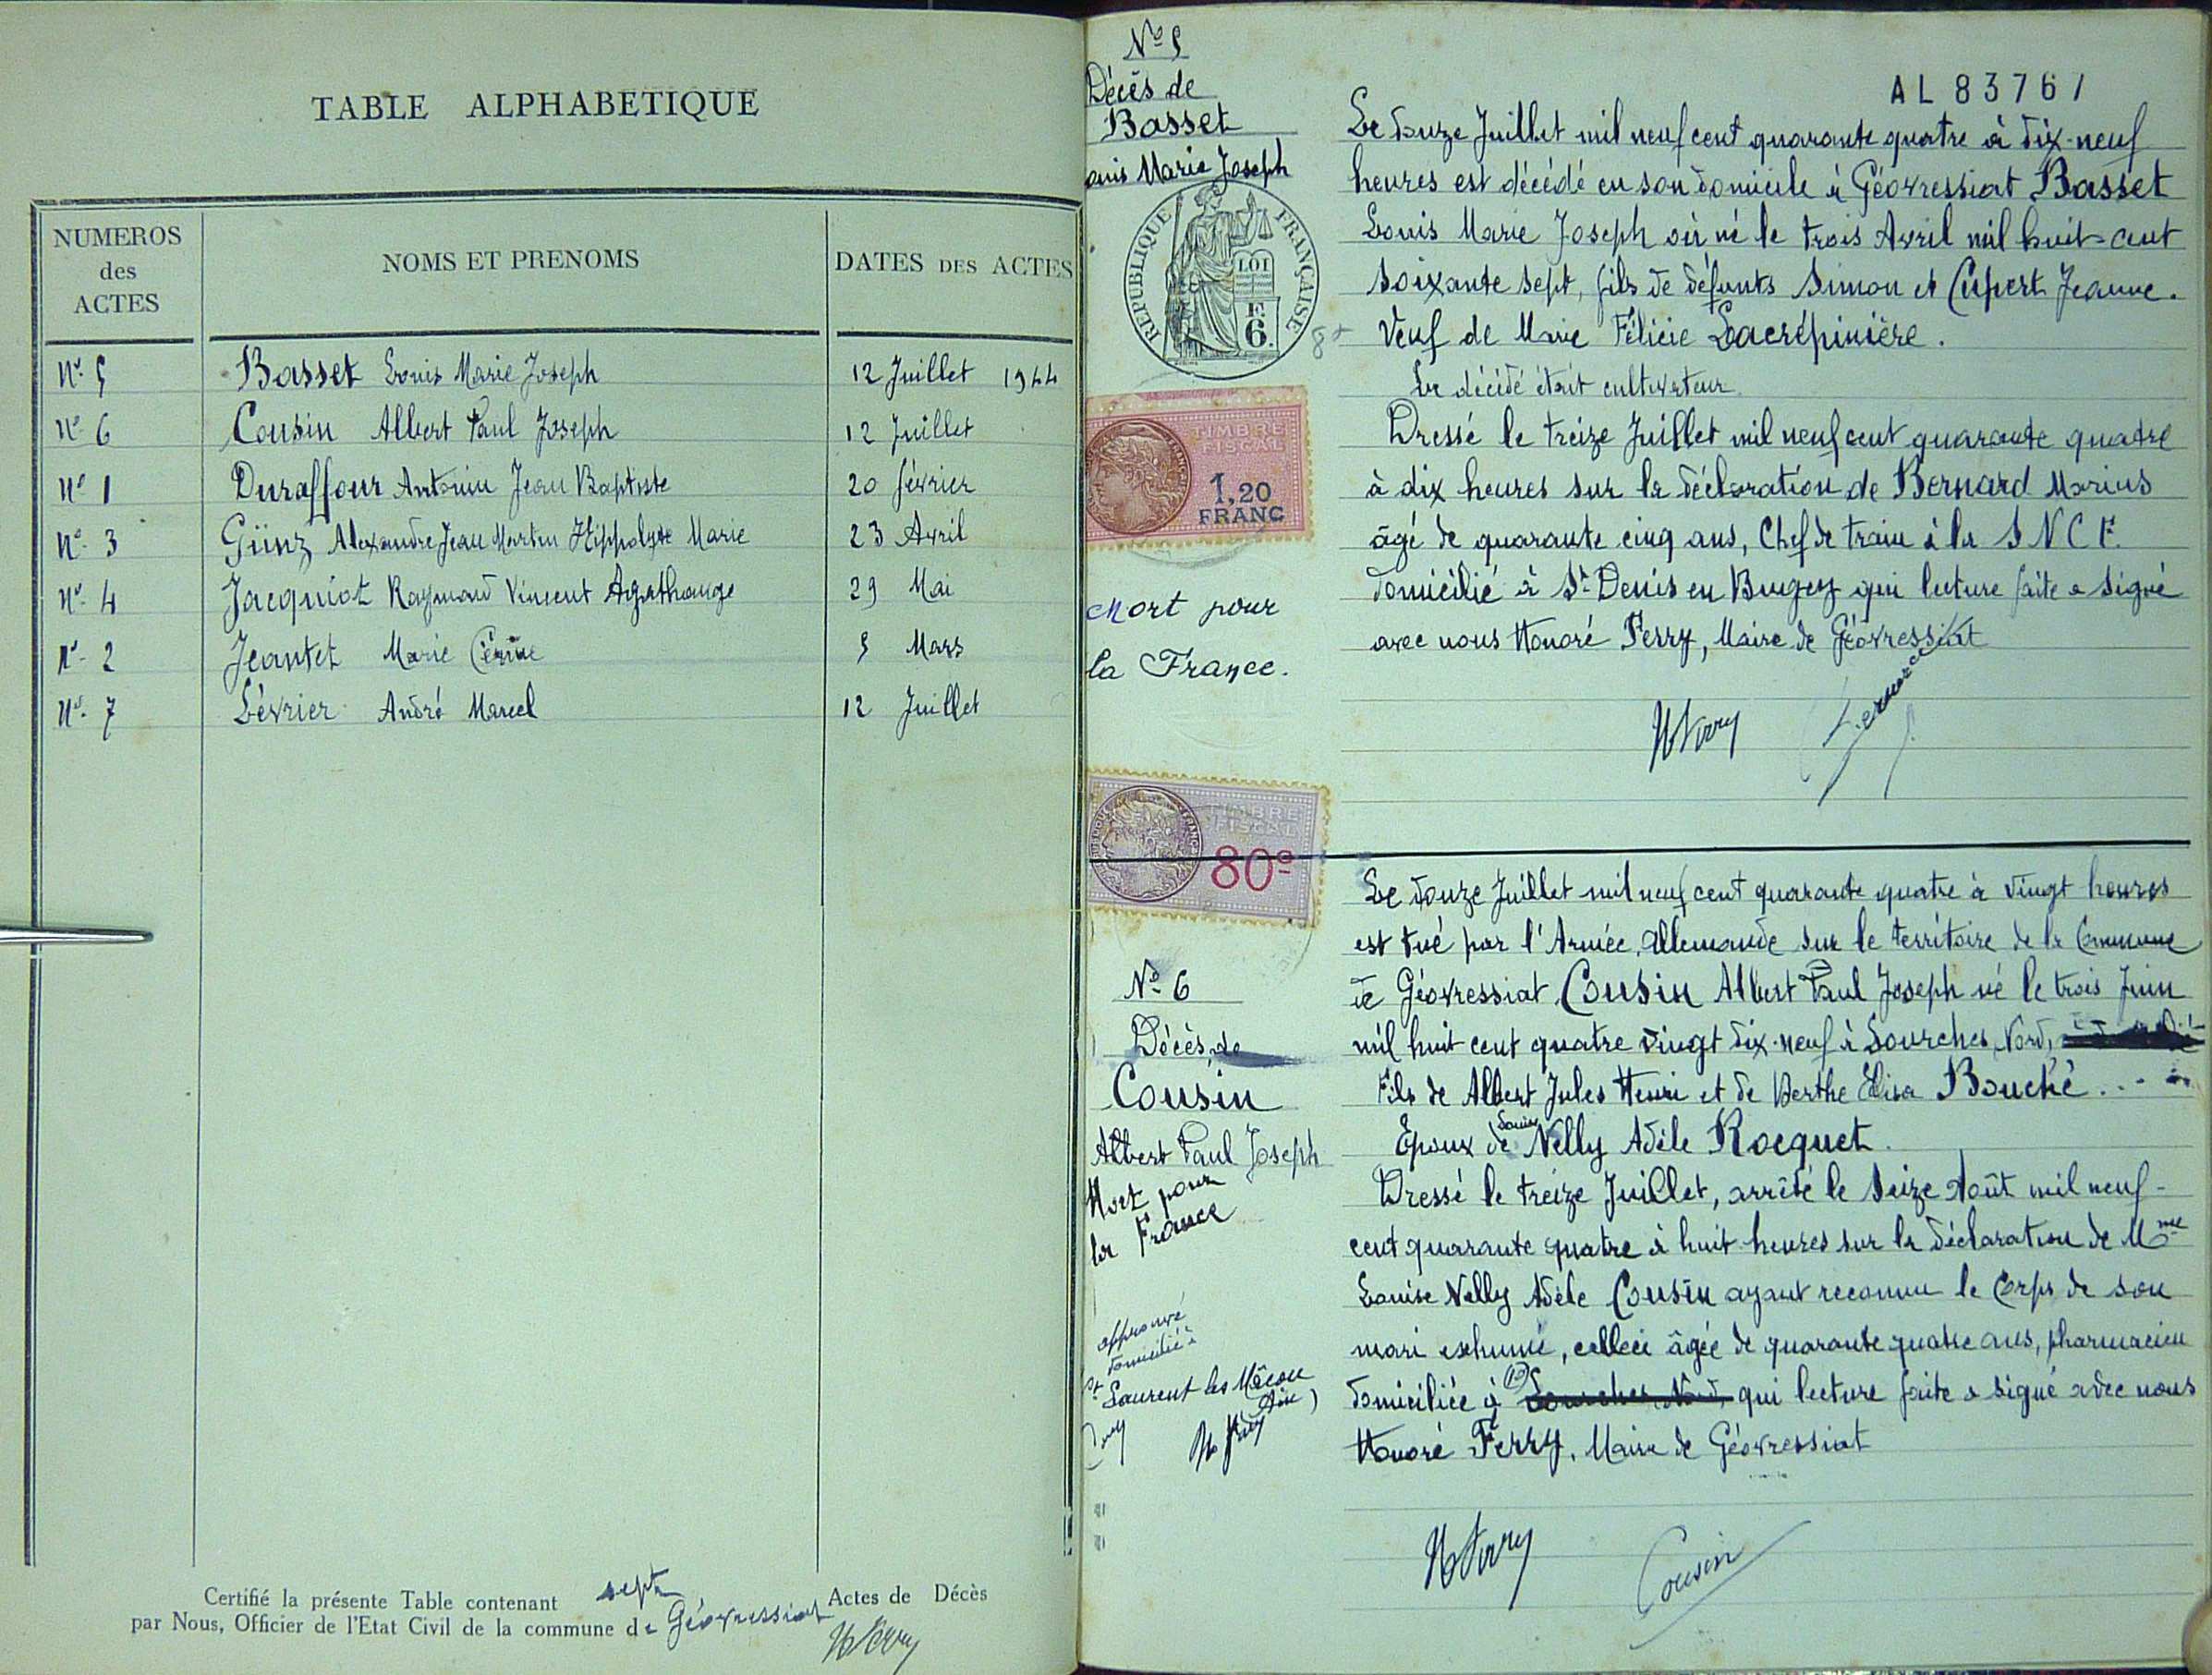 TABLE ALPHABETIQUE
NUMEROS des ACTES
NOMS ET PRENOMS
DATES DES ACTES
N° 5 Basset Louis Marie Joseph 12 Juillet 1944
N° 6 Cousin Albert Paul Joseph 12 Juillet
N° 1 Duraffour Antonin Jean Baptiste 20 février
N° 3 Günz Alexandre Jean Martin Hippolyte Marie 23 Avril
N° 4 Jacquiot Raymond Vincent Agathange 29 Mai
N° 2 Jeantet Marie 5 Mars
N° 7 Lévrier André Marcel 12 Juillet
Certifié la présente Table contenant sept Actes de Décès
par Nous, Officier de l'Etat Civil de la commune de Géovressiat
HFerry
N° 5
Décès de
Basset
ouis Marie Joseph
REPUBLIQUE FRANÇAISE
LOI
6.
TIMBRE
FISCAL
1,20
FRANC
Mort pour
la France.
TIMBRE
FISCAL
80c
AL 83761
Le douze Juillet mil neuf cent quarante quatre à dix-neuf
heures est décédé en son domicile à Géovressiat Basset
Louis Marie Joseph où né le trois Avril mil huit-cent
soixante sept, fils de défunts Simon et Cupert Jeanne.
Veuf de Marie Félicie Lacrépinière.
Le décédé était cultivateur
Dressé le treize Juillet mil neuf cent quarante quatre
à dix heures sur la déclaration de Bernard Marius
âgé de quarante cinq ans, Chef de train à la S N C F.
domicilié à St Denis en Bugey qui lecture faite a signé
avec nous Honoré Ferry, Maire de Géovressiat
HFerry
N° 6
Décès de
Cousin
Albert Paul Joseph
Mort pour
la France
approuvé
domicilié à
St Laurent les Mâcon
Ain)
Le douze Juillet mil neuf cent quarante quatre à vingt heures
est tué par l'Armée Allemande sur le territoire de la Commune
de Géovressiat Cousin Albert Paul Joseph né le trois Juin
mil huit cent quatre vingt dix-neuf à Lourches, Nord,
Fils de Albert Jules Henri et de Berthe Elisa Bouché...
Epoux de Louise Nelly Adèle Rocquet.
Dressé le treize Juillet, arrêté le seize Août mil neuf-
cent quarante quatre à huit heures sur la déclaration de Mme
Louise Nelly Adèle Cousin ayant reconnu le corps de son
mari exhumé, celleci âgée de quarante quatre ans, pharmacien
domiciliée à Lourches Nord, qui lecture faite a signé avec nous
Honoré Ferry, Maire de Géovressiat
HFerry Cousin